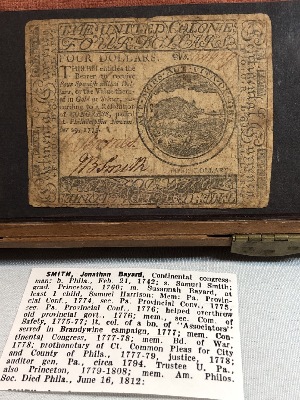 THE UNITED COLONIES
FOUR DOLLARS.
FOUR DOLLARS.
THIS Bill entitles the
Bearer to receive
Four Spanish milled Dol-
lars, or the Value thereof
in Gold or Silver,
according to a Resolution
of CONGRESS, passed
at Philadelphia
1775.
JB Smith
FOUR DOLLARS
SMITH, Jonathan Bayard, Continental congress-
man; b. Phila., Feb. 21, 1742; s. Samuel Smith;
grad. Princeton, 1760; m. Susannah Bayard, at
least 1 child, Samuel Harrison; Mem: Pa. Provin-
cial Conf., 1774, sec. Pa. Provincial Conv., 1775,
sec. Pa. Provincial Conf., 1776; helped overthrow
old provincial govt., 1776; mem., sec. Com. of
Safety, 1775-77; lt. col. of a bn. of "Associators"
served in Brandywine campaign, 1777; mem. Con-
tinental Congress, 1777-78; mem. Bd. of War,
1778; prothonotary of Ct. Common Pleas for City
and County of Phila., 1777-79, justice, 1778;
auditor gen. Pa., circa 1794. Trustee U. Pa.,
also Princeton, 1779-1808; mem. Am. Philos.
Soc. Died Phila., June 16, 1812: